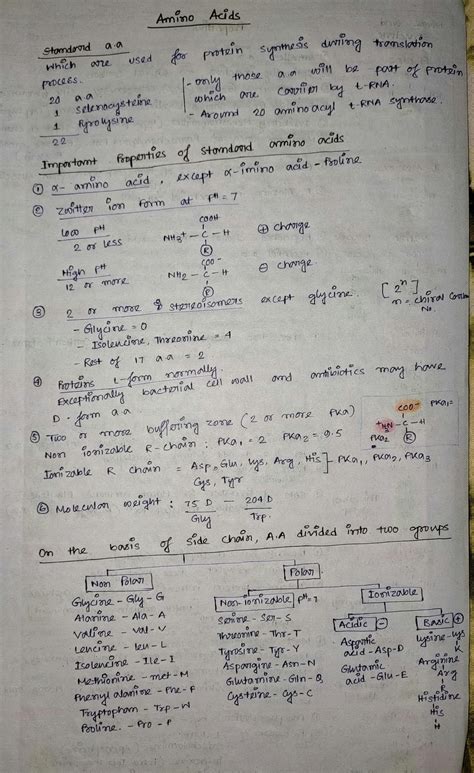 Amino Acids
Standard a.a
which are used for protein synthesis during translation
process.
20 a a
1 Selenocysteine
1 Pyrolysine
22
- only those a.a will be part of protein
which are carried by t-RNA.
- Around 20 aminoacyl t-RNA synthase.
Important Properties of standard amino acids
① α- amino acid, except α-imino acid - Proline
② Zwitter ion form at pH = 7
Low pH
2 or less
COOH
NH3+ - C - H
R
⊕ charge
High pH
12 or more
COO-
NH2 - C - H
R
⊖ charge
③ 2 or more stereoisomers except glycine. [2^n]
n = chiral
No.
- Glycine = 0
- Isoleucine, Threonine = 4
- Rest of 17 a.a = 2
④ Proteins L-form normally.
Exceptionally bacterial cell wall and antibiotics may have
D-form a.a
⑤ Two or more buffering zone (2 or more PKa)
Non ionizable R-chain : PKa1 = 2 PKa2 = 9.5
Ionizable R chain = Asp, Glu, Lys, Arg, His - PKa1, PKa2, PKa3
Cys, Tyr
COO- PKa1=
+H3N - C - H
PKa2
R
⑥ Molecular weight : 75 D - 204 D
Gly Trp.
On the basis of side chain, A.A divided into two groups
Non Polar
Polar
Glycine - Gly - G
Alanine - Ala - A
Valine - Val - V
Leucine - Leu - L
Isoleucine - Ile - I
Methionine - met - M
Phenyl alanine - Phe - F
Tryptophan - Trp - W
Proline - Pro - P
Non-ionizable pH=7
Serine - Ser - S
Threonine - Thr - T
Tyrosine - Tyr - Y
Aspargine - Asn - N
Glutamine - Gln - Q
Cysteine - Cys - C
Ionizable
Acidic ⊖
Aspartic
acid - Asp - D
Glutamic
acid - Glu - E
Basic ⊕
Lysine - Lys
K
Arginine
Arg
R
Histidine
His
H